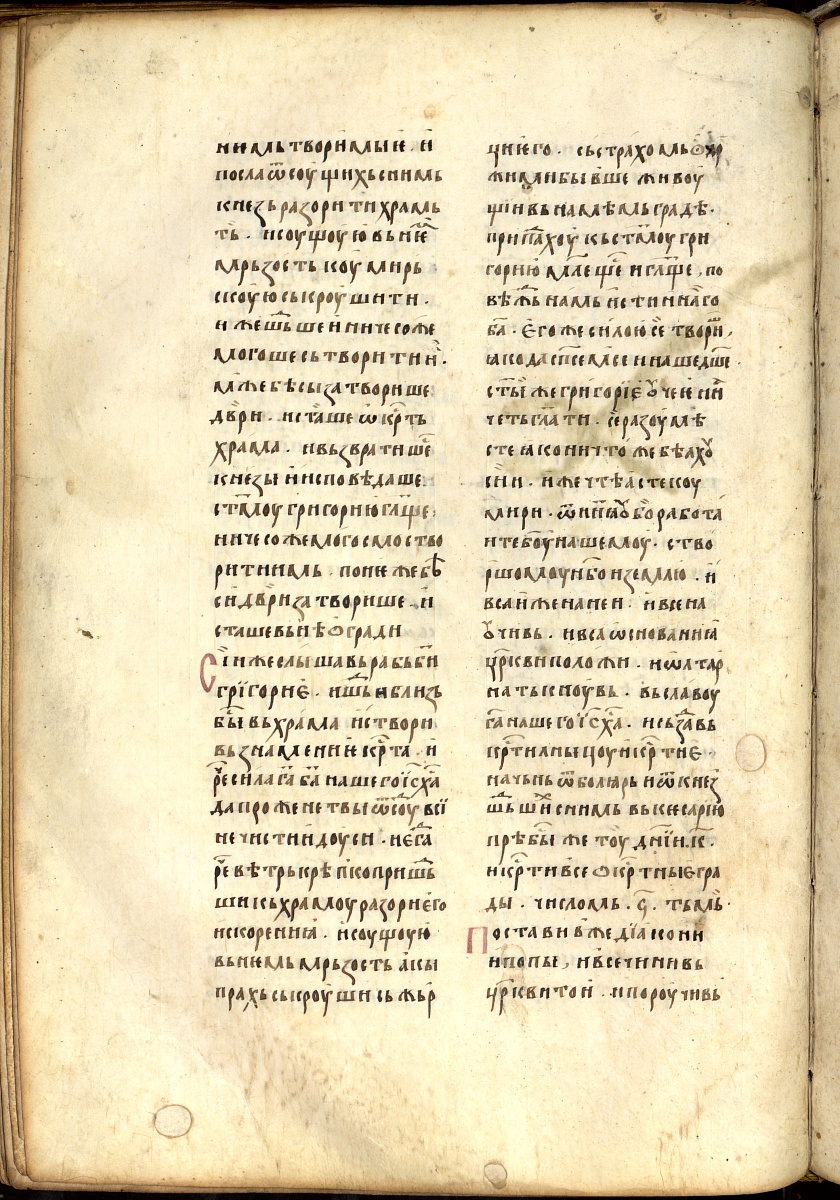 нимь творимыѥ · и
посла ѿсоущихь с нимь
кнезь разорити храмь
ть · и соущоую вь нѥмь
мрьзость коумирь
скоую ськроушити ·
иже шьдьше и ничесоже
могоше сьтворити и
мже бѣсы затворише
двьри · и сташе ѡкрⷭть
храма · и вьзвратише
кнезы и исповѣдаше
стⷨоу григорию гл҃юще
ничесоже могосмо ство
рити имь · пон⥠же бѣ
си двьри затворише · и
сташе вьнѣ ѡгради
Сиже слышавь рабь би҃и
григориѥ · и шьдь и близь
бывь храма и створи
вь знамениѥ крⷭта · и
рⷱе сила га҃ ба҃ нашего іс҃ х҃а
да проженеть вы ѿсоудоу вьсі
нечисти и доуси · и ѥгⷣа
рⷱе вѣтрь крѣпко пришьⷣ
ши кь храмоу разори ѥго
ис корениꙗ · и соущоую
вь нѥмь мрьзость акы
прахь ськроуши сь жьр
ци ѥго · сь страхомь ѡдрь
жими бывше живоу
щи вь намѣмь градѣ ·
припадахоу кь стмⷨоу гри
горию млеще и гл҃юще , по
вѣждь намь истиннаго
ба҃ · ѥгоже силою се твори ,
ꙗко да спⷭсемсе и нашедше ·
сты же григориѥ оучении
четь гл҃ати · се разоумѣ
сте ꙗко ничтоже бѣахоу
сии · иже чтѣасте коу
мири · ѿнинꙗ оубо работа
ите боу҃ нашемоу · ство
ршомоу нб҃о и землю · и
вса иже на неи · и все на
оучивь · и вса ѡснованиꙗ
црⷦкви положи · и ѡлтарь
натькноувь · вь славоу
га҃ нашего іс҃ х҃а · и сьзⷣавь
крⷭтилницоу и крⷭтиѥ ·
начьнь ѿ болꙗрь и ѿ кнезь
шьдьших с нимь вь кесарию
прѣбы же тоу дн҃и · к҃ ·
и крⷭти все ѡкрⷭтныѥ гра
ды · числомь · ѕ҃ · тьмь ·
Поставивже диꙗкони
и попы , и все чини вь
црⷦкви тои · и пороучивь